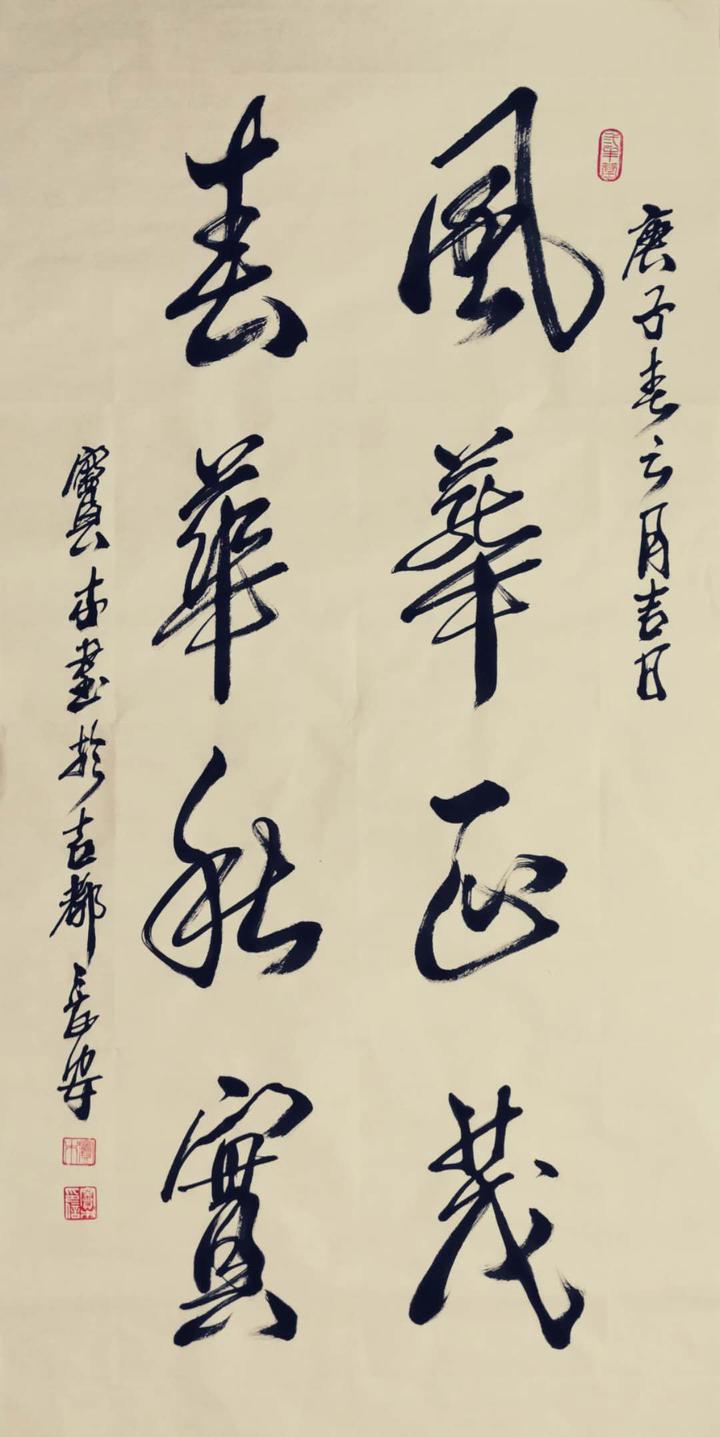 庚子春云月吉日
風華正茂
春華秋實
寶木書於古都長安